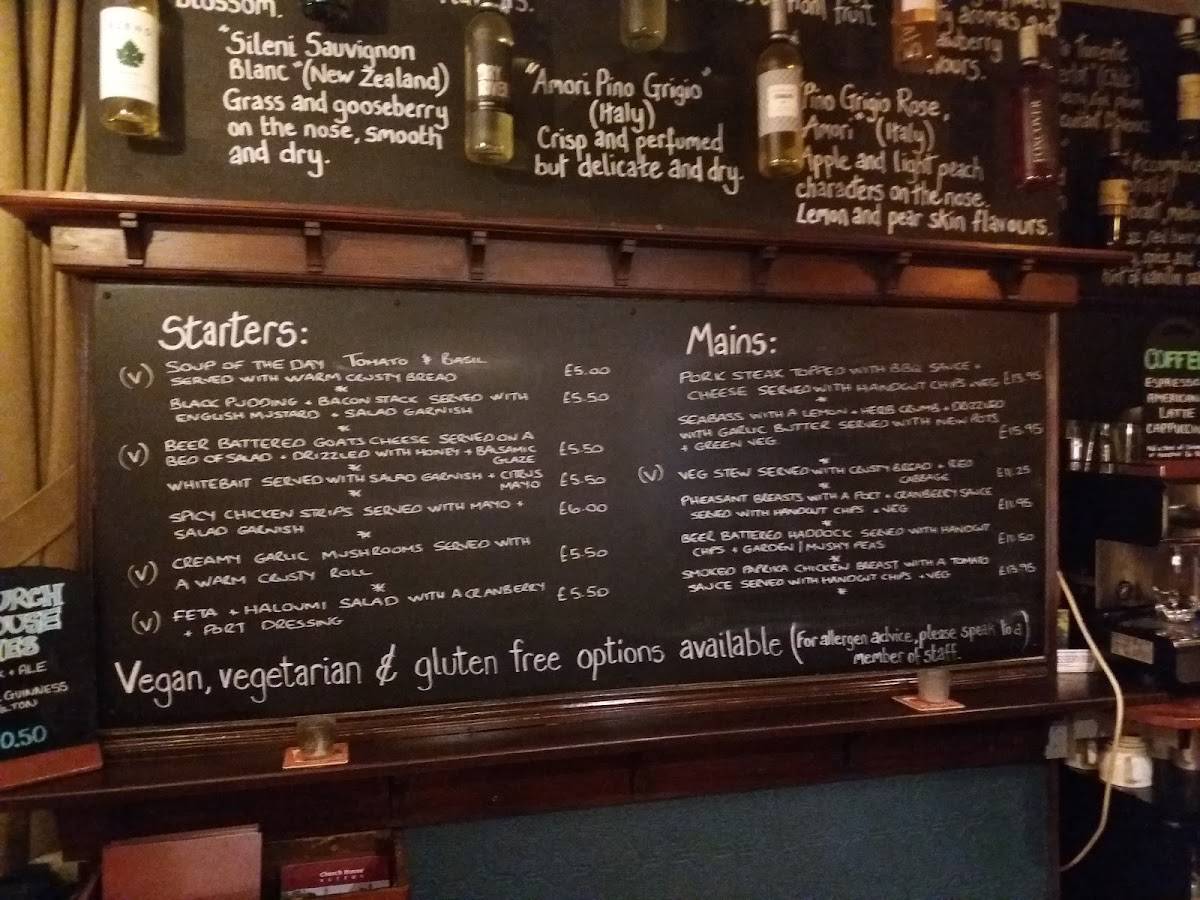 blossom.
"Sileni Sauvignon
Blanc" (New Zealand)
Grass and gooseberry
on the nose, smooth
and dry.
"Amori Pino Grigio"
(Italy)
Crisp and perfumed
but delicate and dry.
Pino Grigio Rose,
Amori" (Italy)
Apple and light peach
characters on the nose.
Lemon and pear skin flavours.
Starters:
(V) SOUP OF THE DAY TOMATO & BASIL
SERVED WITH WARM CRUSTY BREAD £5.00
*
BLACK PUDDING + BACON STACK SERVED WITH £5.50
ENGLISH MUSTARD + SALAD GARNISH
*
(V) BEER BATTERED GOATS CHEESE SERVED ON A
BED OF SALAD + DRIZZLED WITH HONEY + BALSAMIC £5.50
GLAZE
*
WHITEBAIT SERVED WITH SALAD GARNISH + CITRUS £5.50
MAYO
*
SPICY CHICKEN STRIPS SERVED WITH MAYO + £6.00
SALAD GARNISH
*
(V) CREAMY GARLIC MUSHROOMS SERVED WITH £5.50
A WARM CRUSTY ROLL
*
(V) FETA + HALOUMI SALAD WITH A CRANBERRY £5.50
+ PORT DRESSING
Mains:
PORK STEAK TOPPED WITH BBQ SAUCE +
CHEESE SERVED WITH HANDCUT CHIPS + VEG £13.95
*
SEABASS WITH A LEMON + HERB CRUMB + DRIZZLED
WITH GARLIC BUTTER SERVED WITH NEW POTS £15.95
+ GREEN VEG
*
(V) VEG STEW SERVED WITH CRUSTY BREAD + RED £11.25
CABBAGE
*
PHEASANT BREASTS WITH A PORT + CRANBERRY SAUCE
SERVED WITH HANDCUT CHIPS + VEG £11.95
*
BEER BATTERED HADDOCK SERVED WITH HANDCUT
CHIPS + GARDEN / MUSHY PEAS £11.50
*
SMOKED PAPRIKA CHICKEN BREAST WITH A TOMATO
SAUCE SERVED WITH HANDCUT CHIPS + VEG £13.95
*
Vegan, vegetarian & gluten free options available (For allergen advice, please speak to a)
member of staff.
COFFEE
ESPRESSO
AMERICAN
LATTE
CAPPUCCIN
URCH
OUSE
IES
+ ALE
GUINNESS
0.50
Church House